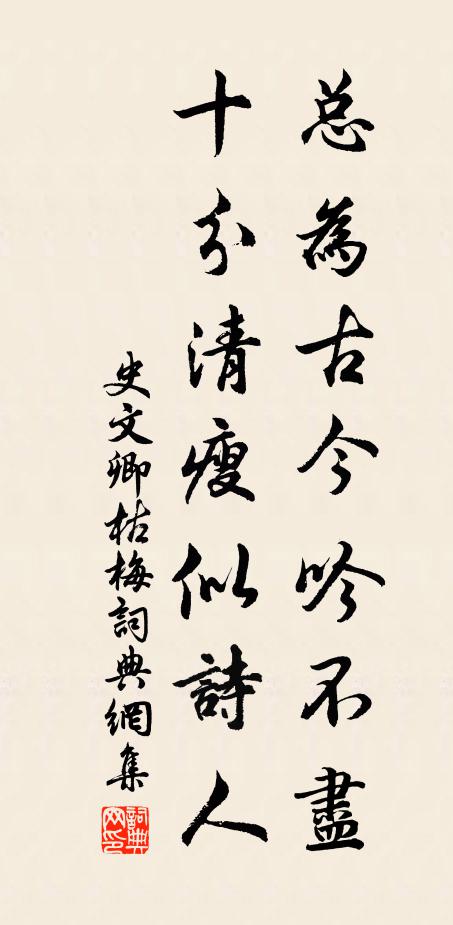 总為古今吟不盡
十分清瘦似詩人
史文卿枯梅詞典網集
詞典网印